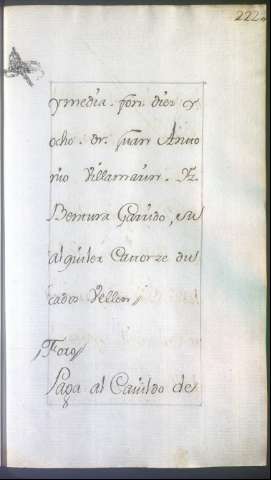 222
y media. fon. diez y
ocho. dr. Juan Anto
nio Villamarin. Iz.
Bentura Garrido, su
alquiler Catorze du
cados Vellon
Foro
Paga al Cavildo de